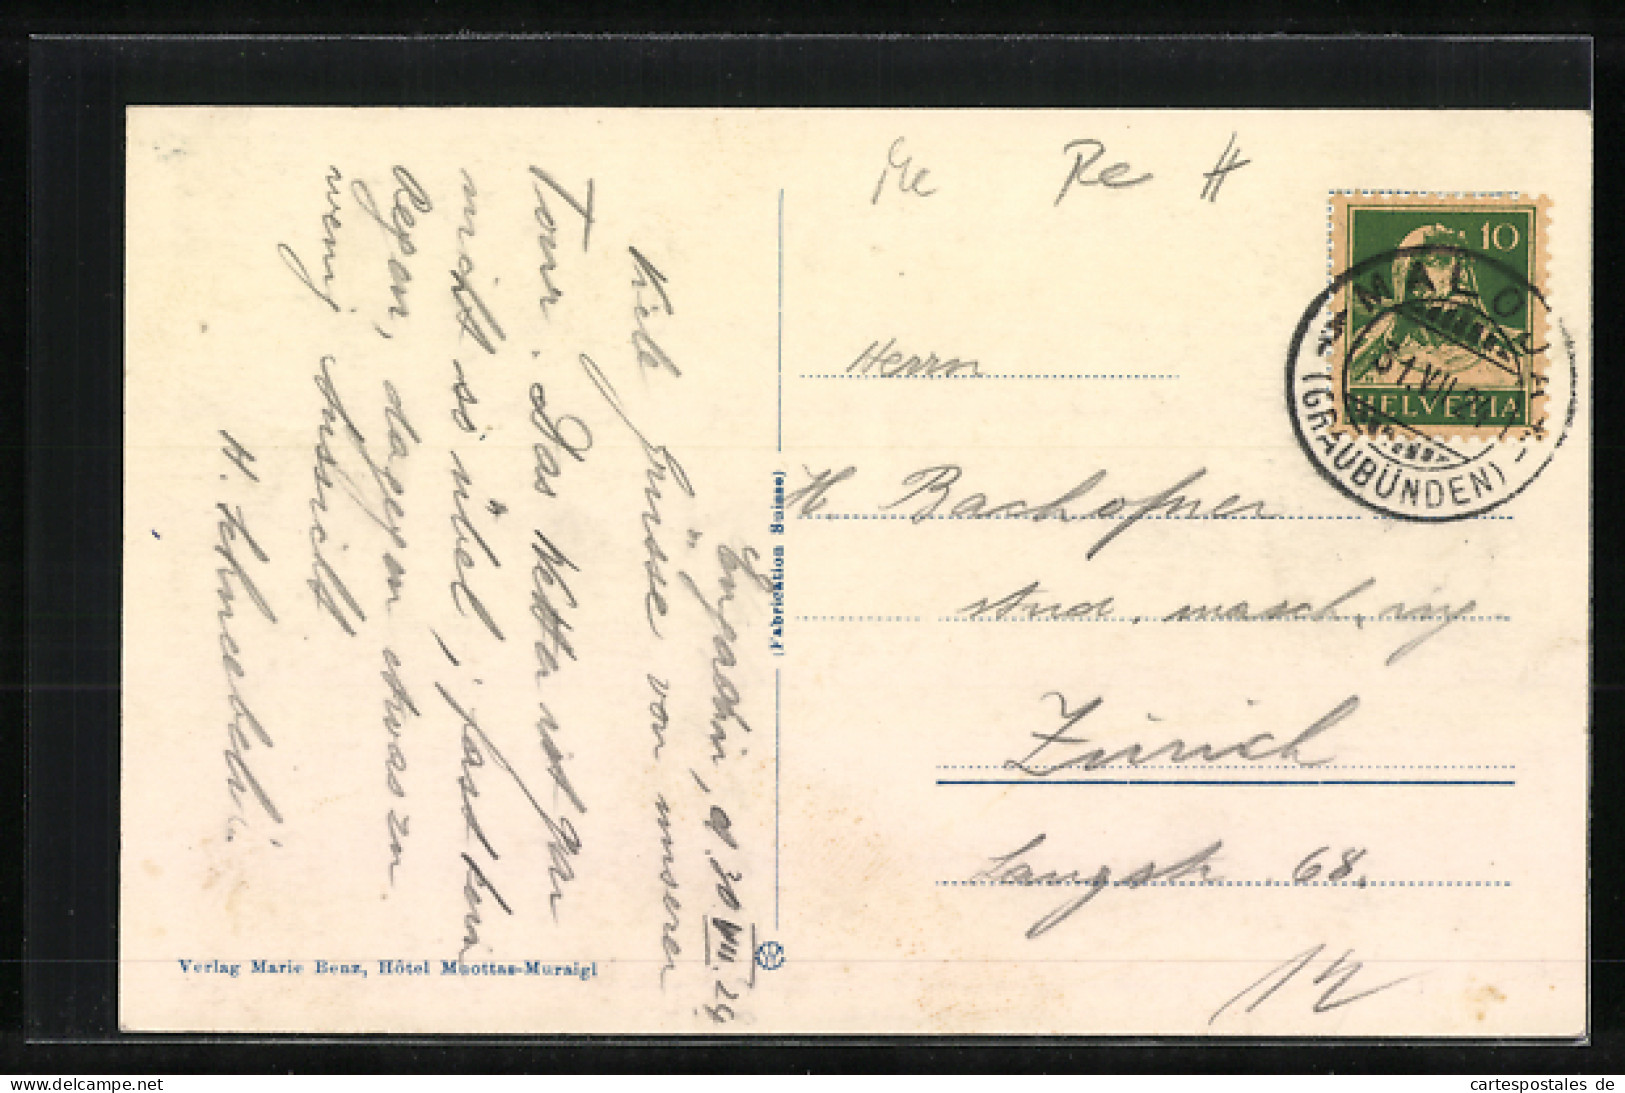 Engadin, d. 30 VII. 24
Viele Grüsse von unserer
Tour. Das Wetter ist gar
nicht so übel, fast kein
Regen, dagegen etwas zu
wenig Aussicht
Verlag Marie Benz, Hôtel Muottas-Muraigl
(Fabrication Suisse)
Re H
10
HELVETIA
MALOJA
31.VII.24
(GRAUBÜNDEN)
Herrn
H. Bachofner
stud. masch. ing
Zürich
Langstr. 68.